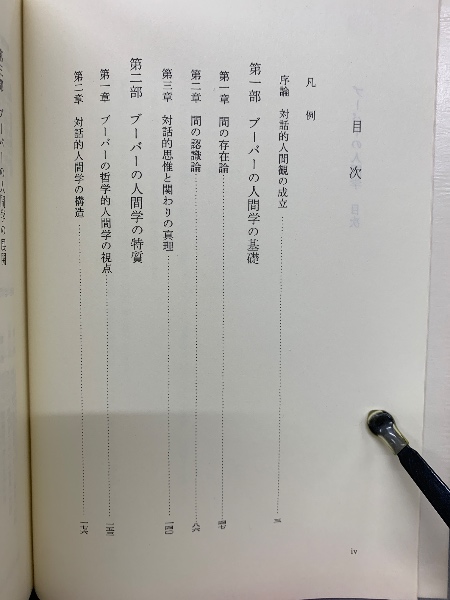 目次
凡例
序論 対話的人間観の成立 三
第一部 ブーバーの人間学の基礎
第一章 間の存在論 四七
第二章 間の認識論 八六
第三章 対話的思惟と関わりの真理 一四〇
第二部 ブーバーの人間学の特質
第一章 ブーバーの哲学的人間学の視点 一五三
第二章 対話的人間学の構造 一七六
iv